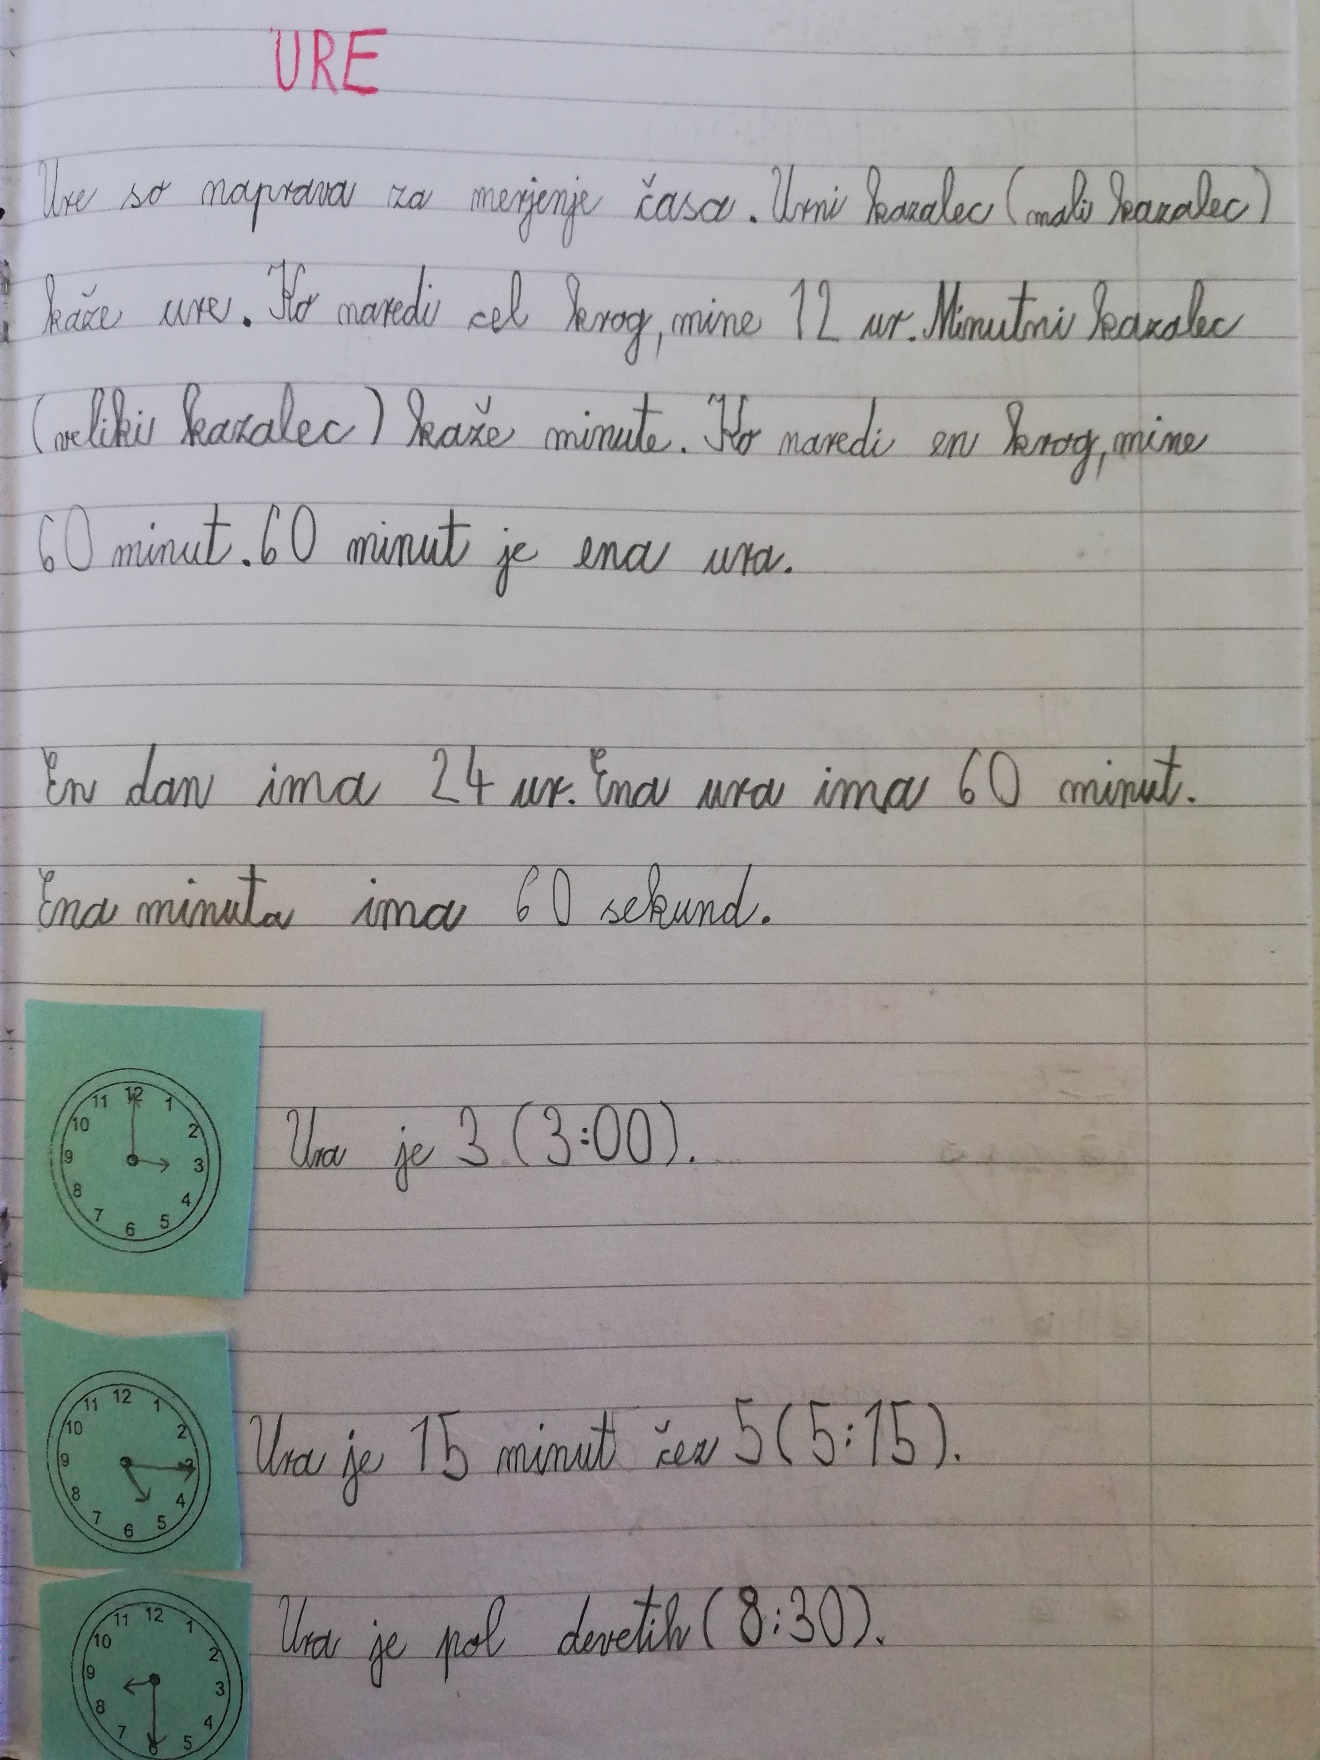 URE
Ure so naprava za merjenje časa. Urni kazalec (mali kazalec)
kaže ure. Ko naredi cel krog, mine 12 ur. Minutni kazalec
(veliki kazalec) kaže minute. Ko naredi en krog, mine
60 minut. 60 minut je ena ura.
En dan ima 24 ur. Ena ura ima 60 minut.
Ena minuta ima 60 sekund.
12 1 2 3 4 5 6 7 8 9 10 11
Ura je 3 (3:00).
12 1 2 3 4 5 6 7 8 9 10 11
Ura je 15 minut čez 5 (5:15).
12 1 2 3 4 5 6 7 8 9 10 11
Ura je pol devetih (8:30).